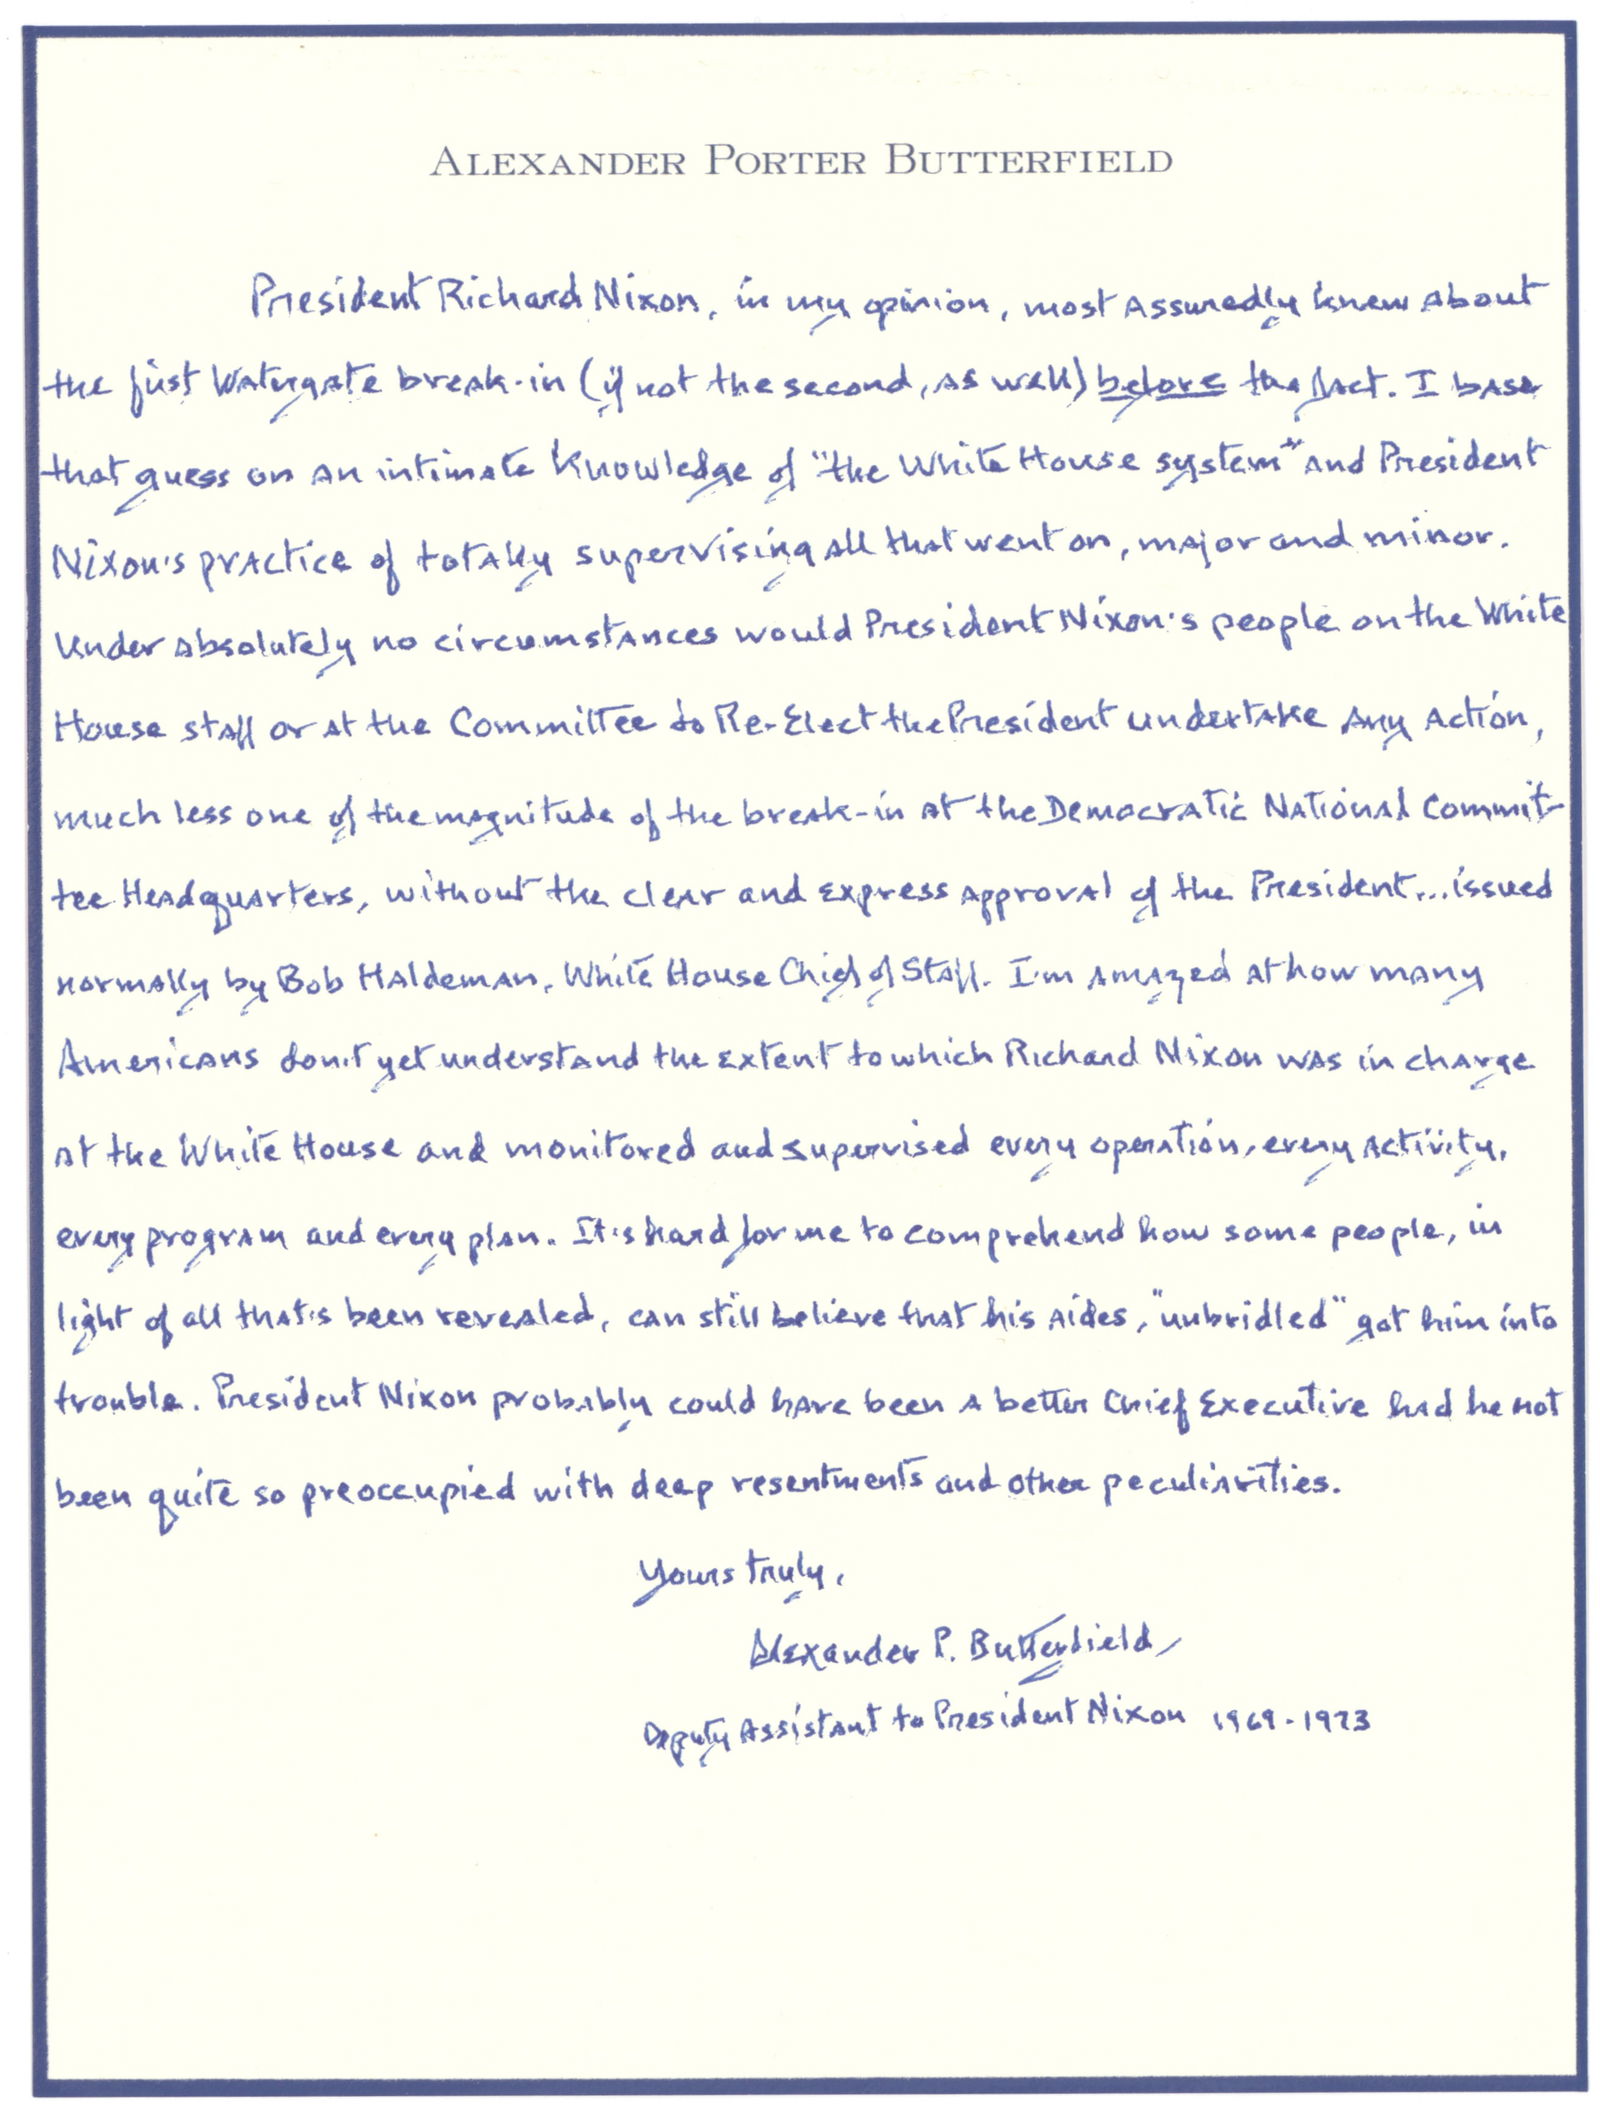 ALEXANDER PORTER BUTTERFIELD
President Richard Nixon, in my opinion, most assuredly knew about
the first Watergate break-in (if not the second, as well) before the fact. I base
that guess on an intimate knowledge of "the White House system" and President
Nixon's practice of totally supervising all that went on, major and minor.
Under absolutely no circumstances would President Nixon's people on the White
House staff or at the Committee to Re-Elect the President undertake any action,
much less one of the magnitude of the break-in at the Democratic National Commit-
tee Headquarters, without the clear and express approval of the President...issued
normally by Bob Haldeman, White House Chief of Staff. I'm amazed at how many
Americans don't yet understand the extent to which Richard Nixon was in charge
at the White House and monitored and supervised every operation, every activity,
every program and every plan. It's hard for me to comprehend how some people, in
light of all that's been revealed, can still believe that his aides, "unbridled" got him into
trouble. President Nixon probably could have been a better Chief Executive had he not
been quite so preoccupied with deep resentments and other peculiarities.
Yours truly,
Alexander P. Butterfield
Deputy Assistant to President Nixon 1969-1973